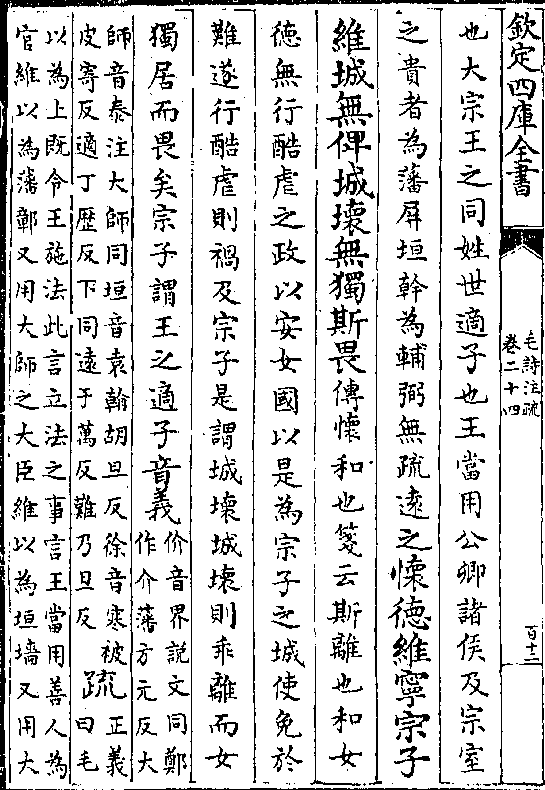 欽定四庫全書
毛詩注疏
卷二十四
百十二
也大宗王之同姓世適子也王當用公卿諸侯及宗室
之貴者為藩屏垣幹為輔弼無疏遠之懷德維寧宗子
維城無俾城壞無獨斯畏傳懷和也箋云斯離也和女
德無行酷虐之政以安女國以是為宗子之城使免於
難遂行酷虐則禍及宗子是謂城壞城壞則乖離而女
獨居而畏矣宗子謂王之適子音義价音界說文同鄭
作介藩方元反大
師音泰注大師同垣音袁翰胡旦反徐音寒被
皮寄反適丁歷反下同遠于萬反難乃旦反疏正義
曰毛
以為上既令王施法此言立法之事言王當用善人為
官維以為藩鄣又用大師之大臣維以為垣墻又用大